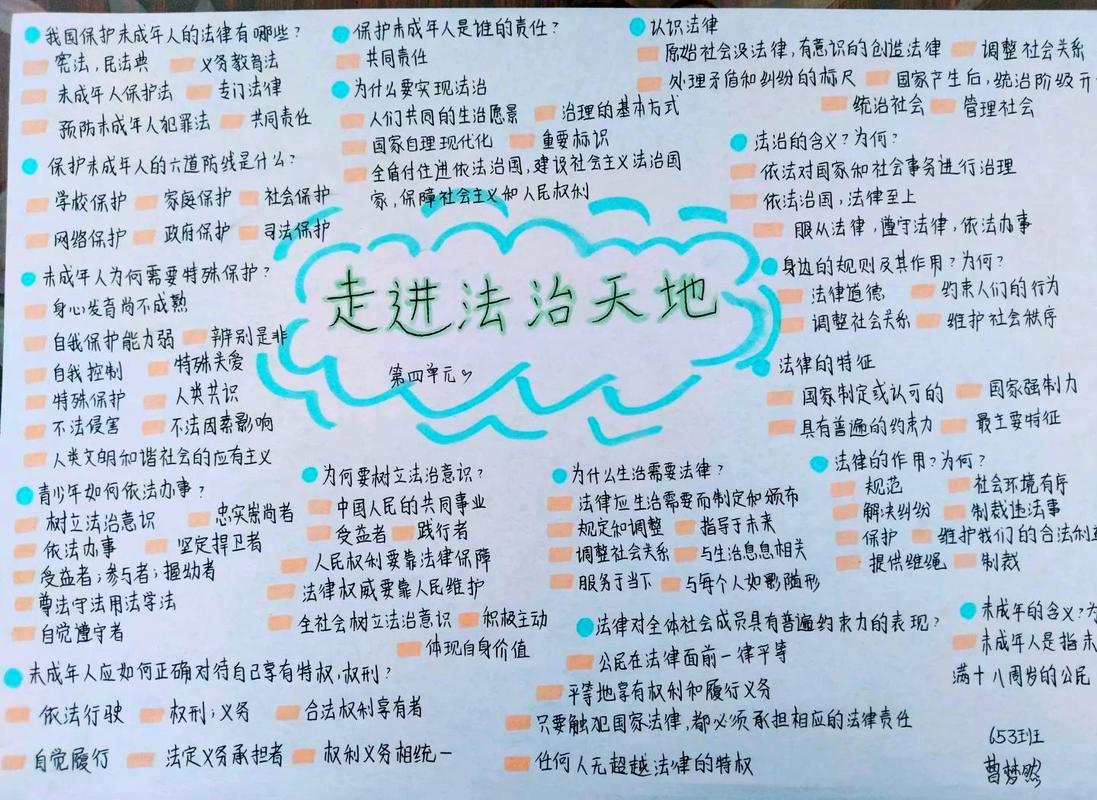 我国保护未成年人的法律有哪些?
宪法,民法典 义务教育法
未成年人保护法 专门法律
预防未成年人犯罪法 共同责任
保护未成年人的六道防线是什么?
学校保护 家庭保护 社会保护
网络保护 政府保护 司法保护
未成年人为何需要特殊保护?
身心发育尚不成熟
自我保护能力弱 辨别是非
自我控制 特殊关爱
特殊保护 人类共识
不法侵害 不法因素影响
人类文明和谐社会的应有主义
青少年如何依法办事?
树立法治意识 忠实崇尚者
依法办事 坚定捍卫者
受益者;参与者;推动者
尊法守法用法学法
自觉遵守者
未成年人应如何正确对待自己享有特权,权利?
依法行驶 权利;义务 合法权利享有者
自觉履行 法定义务承担者 权利义务相统一
保护未成年人是谁的责任?
共同责任
为什么要实现法治
人们共同的生治愿景 治理的基本方式
国家自理现代化 重要标识
全盾付住进依法治国,建设社会主义法治国
家,保障社会主义和人民权利
走进法治天地
第四单元
为何要树立法治意识?
中国人民的共同事业
受益者 践行者
人民权利要靠法律保障
法律权威要靠人民维护
全社会树立法治意识 积极主动
体现自身价值
为什么生治需要法律?
法律应生治需要而制定和颁布
规定和调整 指导于未来
调整社会关系 与生治息息相关
服务于当下 与每个人如影随形
法律对全体社会成员具有普遍约束力的表现?
公民在法律面前一律平等
平等地享有权利和履行义务
只要触犯国家法律,都必须承担相应的法律责任
任何人无超越法律的特权
认识法律
原始社会没法律,有意识的创造法律 调整社会关系
处理矛盾和纠纷的标尺 国家产生后,统治阶级开
统治社会 管理社会
法治的含义?为何?
依法对国家和社会事务进行治理
依法治国,法律至上
服从法律,遵守法律,依法办事
身边的规则及其作用?为何?
法律道德 约束人们的行为
调整社会关系 维护社会秩序
法律的特征
国家制定或认可的 国家强制力
具有普遍的约束力 最主要特征
法律的作用?为何?
规范 社会环境有序
解决纠纷 制裁违法事
保护 维护我们的合法利益
提供维绳 制裁
未成年的含义?为
未成年人是指未
满十八周岁的公民
653班
曹梦